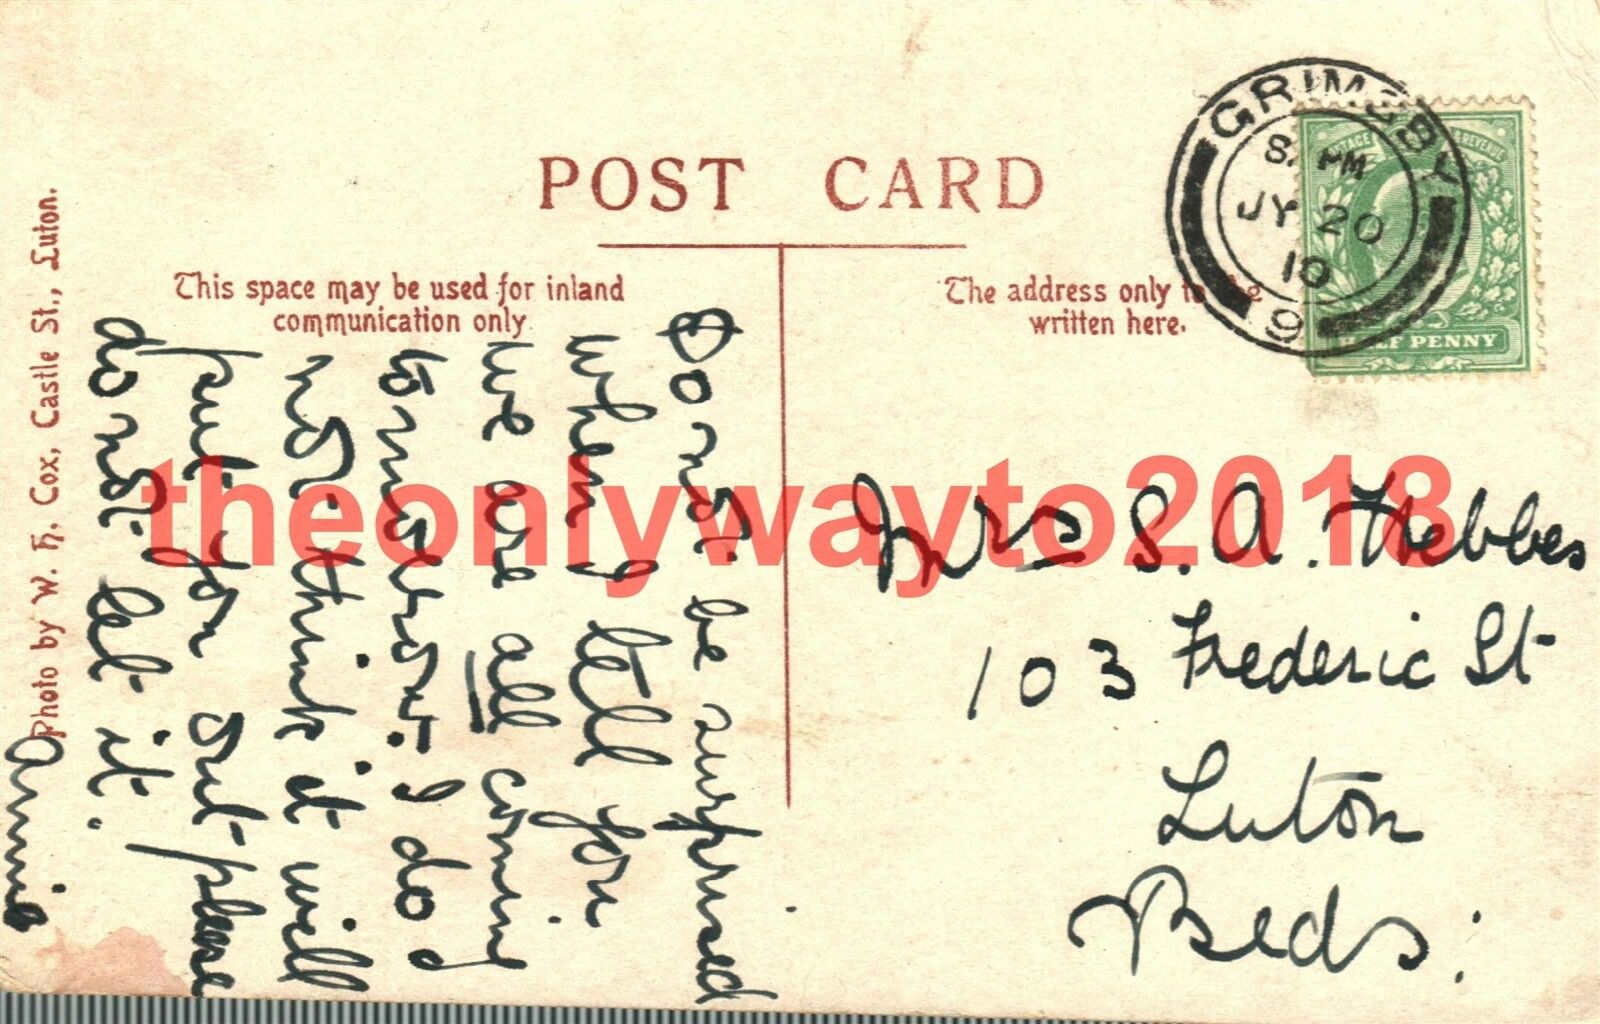 POST CARD
This space may be used for inland
communication only.
The address only to be
written here.
GRIMSBY
8. PM
JY 20
10
9
POSTAGE & REVENUE
HALF PENNY
Photo by W. H. Cox, Castle St., Luton.
Do not be surprised
when I tell you
we are all coming
tomorrow. I do
not think it will
put you out please
do not let it.
Annie
Mrs S. A. Hebbes
103 Frederic St
Luton
Beds.
theonlywayto2018